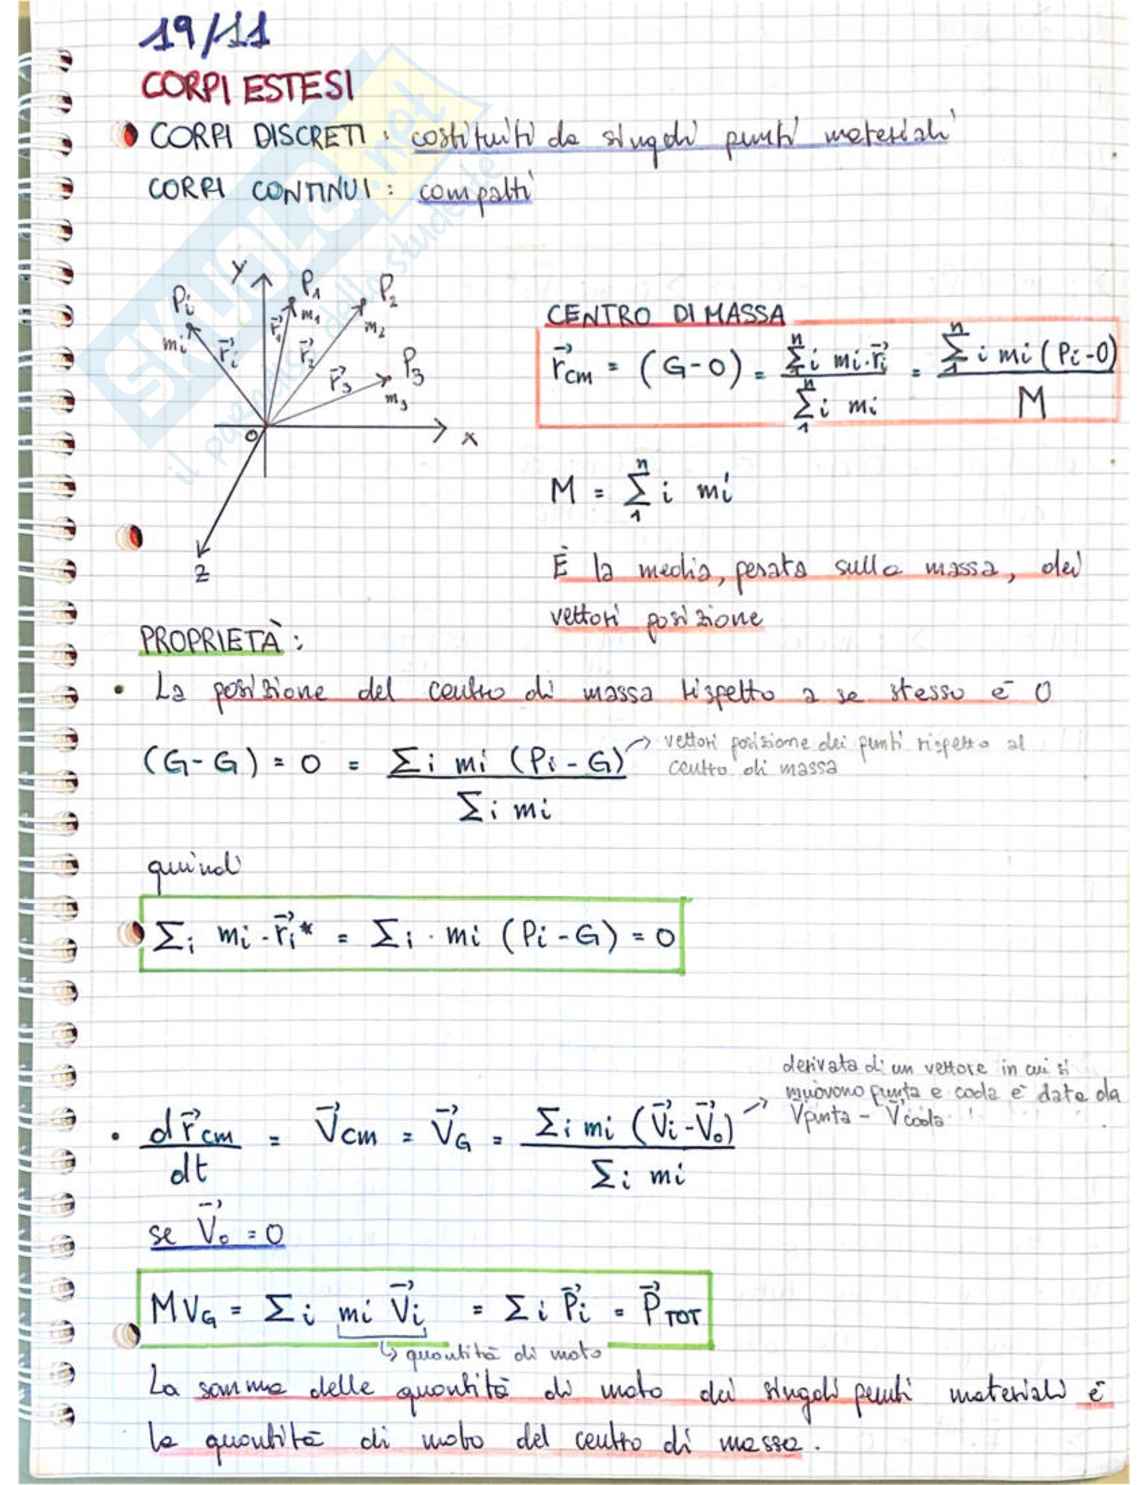 19/11
CORPI ESTESI
CORPI DISCRETI : costituiti da singoli punti materiali
CORPI CONTINUI : compatti
SKUOLA.net
il paradiso dello studente
y
Pi
P₁
P₂
mi
m₁
m₂
r⃗i
r⃗₁
r⃗₂
r⃗₃
P₃
m₃
O
x
z
CENTRO DI MASSA
r⃗cm = (G-O) = ∑₁ⁿi mi·r⃗i / ∑₁ⁿi mi = ∑₁ⁿi mi (Pi-O) / M
M = ∑₁ⁿi mi
È la media, pesata sulla massa, dei
vettori posizione
PROPRIETÀ :
• La posizione del centro di massa rispetto a se stesso è 0
(G-G) = 0 = ∑i mi (Pi-G) / ∑i mi
→ vettori posizione dei punti rispetto al
centro di massa
quindi
∑i mi·r⃗i* = ∑i · mi (Pi-G) = 0
derivata di un vettore in cui si
muovono punta e coda è data da
Vpunta - Vcoda
• dr⃗cm/dt = V⃗cm = V⃗G = ∑i mi (V⃗i-V⃗o) / ∑i mi →
se V⃗o = 0
MVG = ∑i mi V⃗i = ∑i P⃗i = P⃗TOT
↳ quantità di moto
La somma delle quantità di moto dei singoli punti materiali è
la quantità di moto del centro di massa.